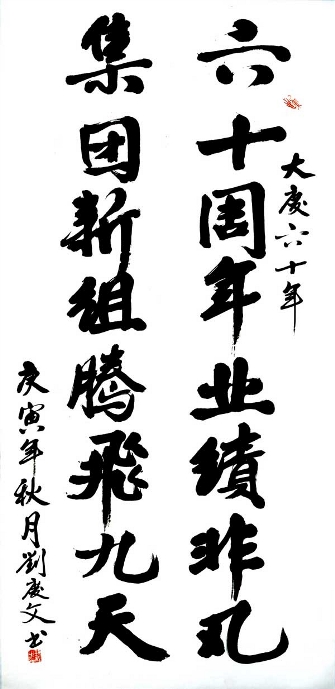 大慶六十年
六十周年业績非凡
集团新组腾飛九天
庚寅年秋月劉慶文书